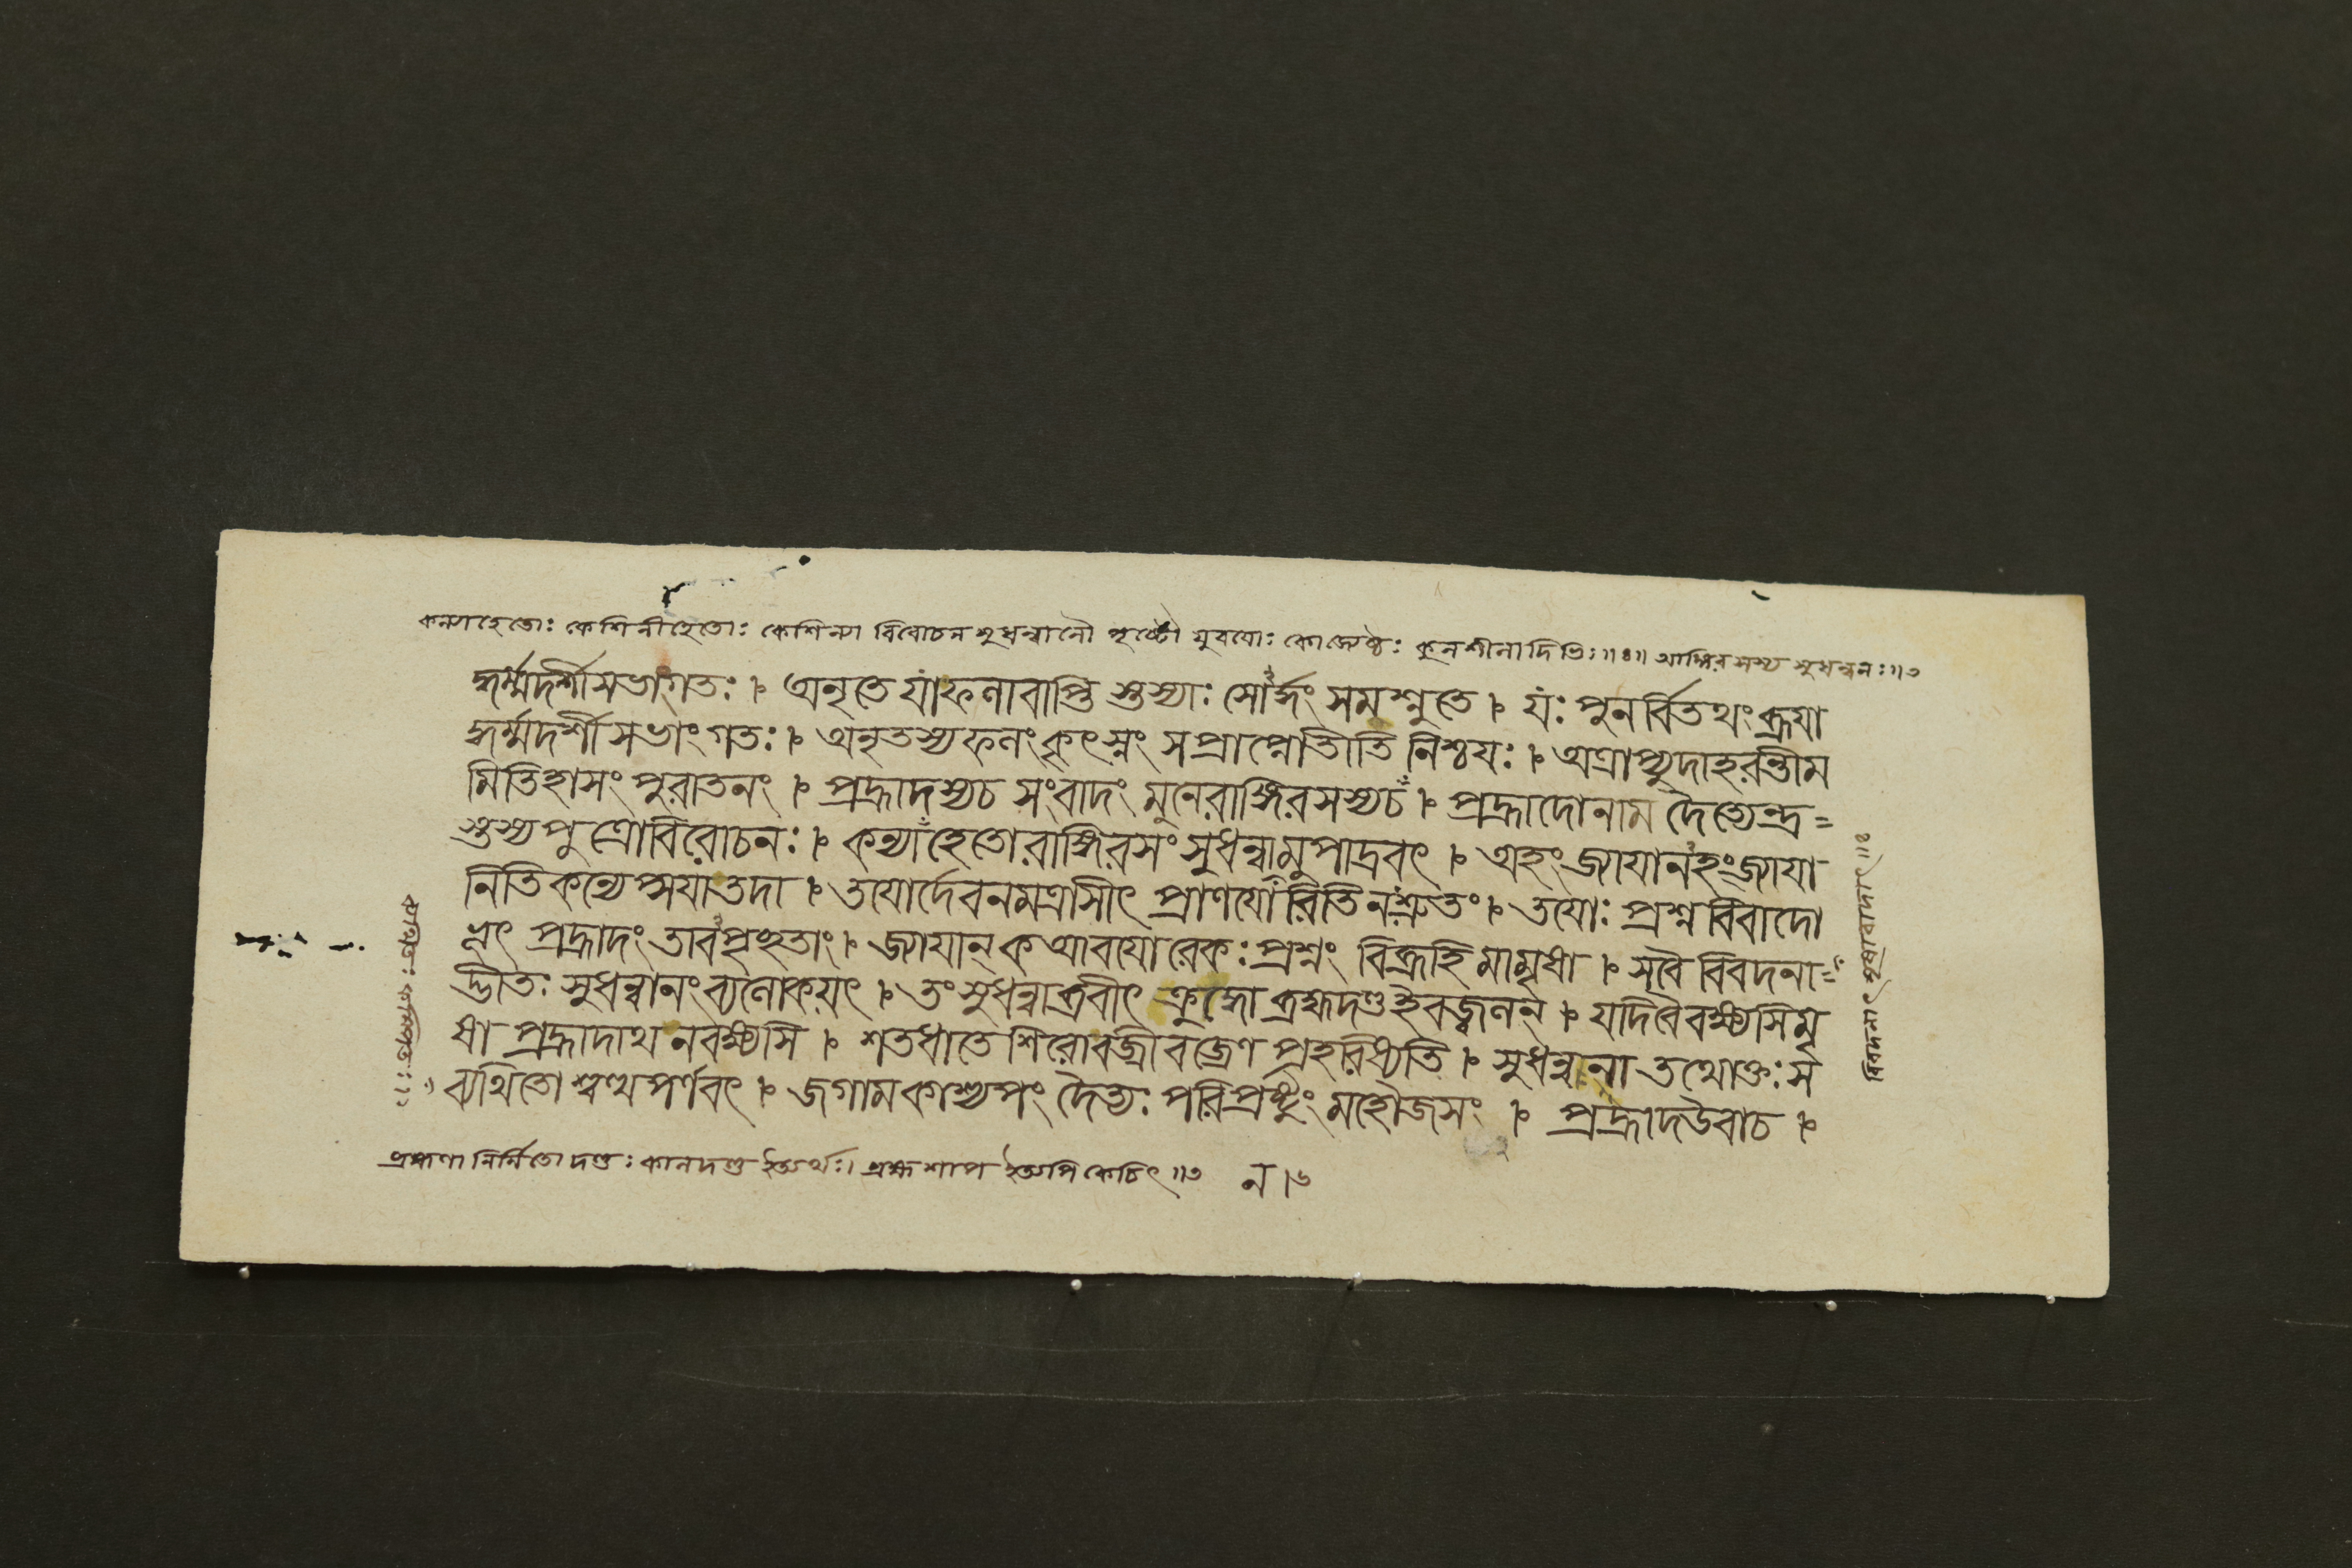 কন্যাহেতোঃ কেশিনীহেতোঃ কেশিন্যা বিরোচন সুধন্বানৌ পৃষ্টৌ যুবয়োঃ কোজ্যেষ্ঠঃ কুলশীলাদিভিঃ॥৪॥ আঙ্গিরসস্য সুধন্বনঃ॥৩
দ্ধর্ম্মদর্শী সভাংগতঃ । অনৃতে যাংফলাবাপ্তি স্তস্যাঃ সোর্দ্ধং সমশ্নুতে । যঃ পুনর্বিতথং ব্রূয়া
দ্ধর্ম্মদর্শী সভাংগতঃ । অনৃতস্যফলং কৃৎস্নং সপ্রাপ্নোতীতি নিশ্চয়ঃ । অত্রাপ্যুদাহরন্তীম
মিতিহাসং পুরাতনং । প্রহ্লাদস্যচ সংবাদং মুনেরাঙ্গিরসস্যচ । প্রহ্লাদোনাম দৈত্যেন্দ্র=
স্তস্যপুত্রোবিরোচনঃ । কন্যাহেতোরাঙ্গিরসং সুধন্বামুপাদ্রবৎ । অহংজ্যায়ানহংজ্যায়া
নিতিকন্যেপ্সয়াতদা । তয়োর্দেবনমত্রাসীৎ প্রাণয়োরিতিনঃশ্রুতং । তয়োঃ প্রশ্ন বিবাদো
ভূৎ প্রহ্লাদং তাবপৃচ্ছতাং । জ্যায়ান্ ক আবয়োরেকঃ প্রশ্নং বিব্রূহি মামৃষা । সবৈ বিবদনা=
দ্ভীতঃ সুধন্বানংব্যলোকয়ৎ । তংসুধন্বাব্রবীৎ ক্রুদ্ধো ব্রহ্মদণ্ডইবজ্বলন্ । যদিবৈবক্ষ্যসিমৃ
ষা প্রহ্লাদাথ নবক্ষ্যসি । শতধাতে শিরোবজ্রী বজ্রেণ প্রহরিষ্যতি । সুধন্বনা তথোক্তঃস
ব্যথিতোশ্বত্থপর্ণবৎ । জগামকাশ্যপং দৈত্যঃ পরিপ্রষ্টুং মহৌজসং । প্রহ্লাদউবাচ ।
ব্রহ্মণা নির্ম্মিতো দণ্ডঃ কালদণ্ড ইত্যর্থঃ। ব্রহ্মশাপ ইত্যপি কেচিৎ॥৩
বিবদনাৎ মৃষাবাদাৎ॥৪